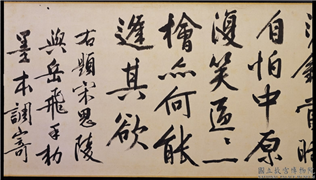 渡錯當時
自怕中原
復笑區〻一
檜亦何能
逢其欲
右題宋思陵
與岳飛手敕
墨本調寄
國立故宮博物院